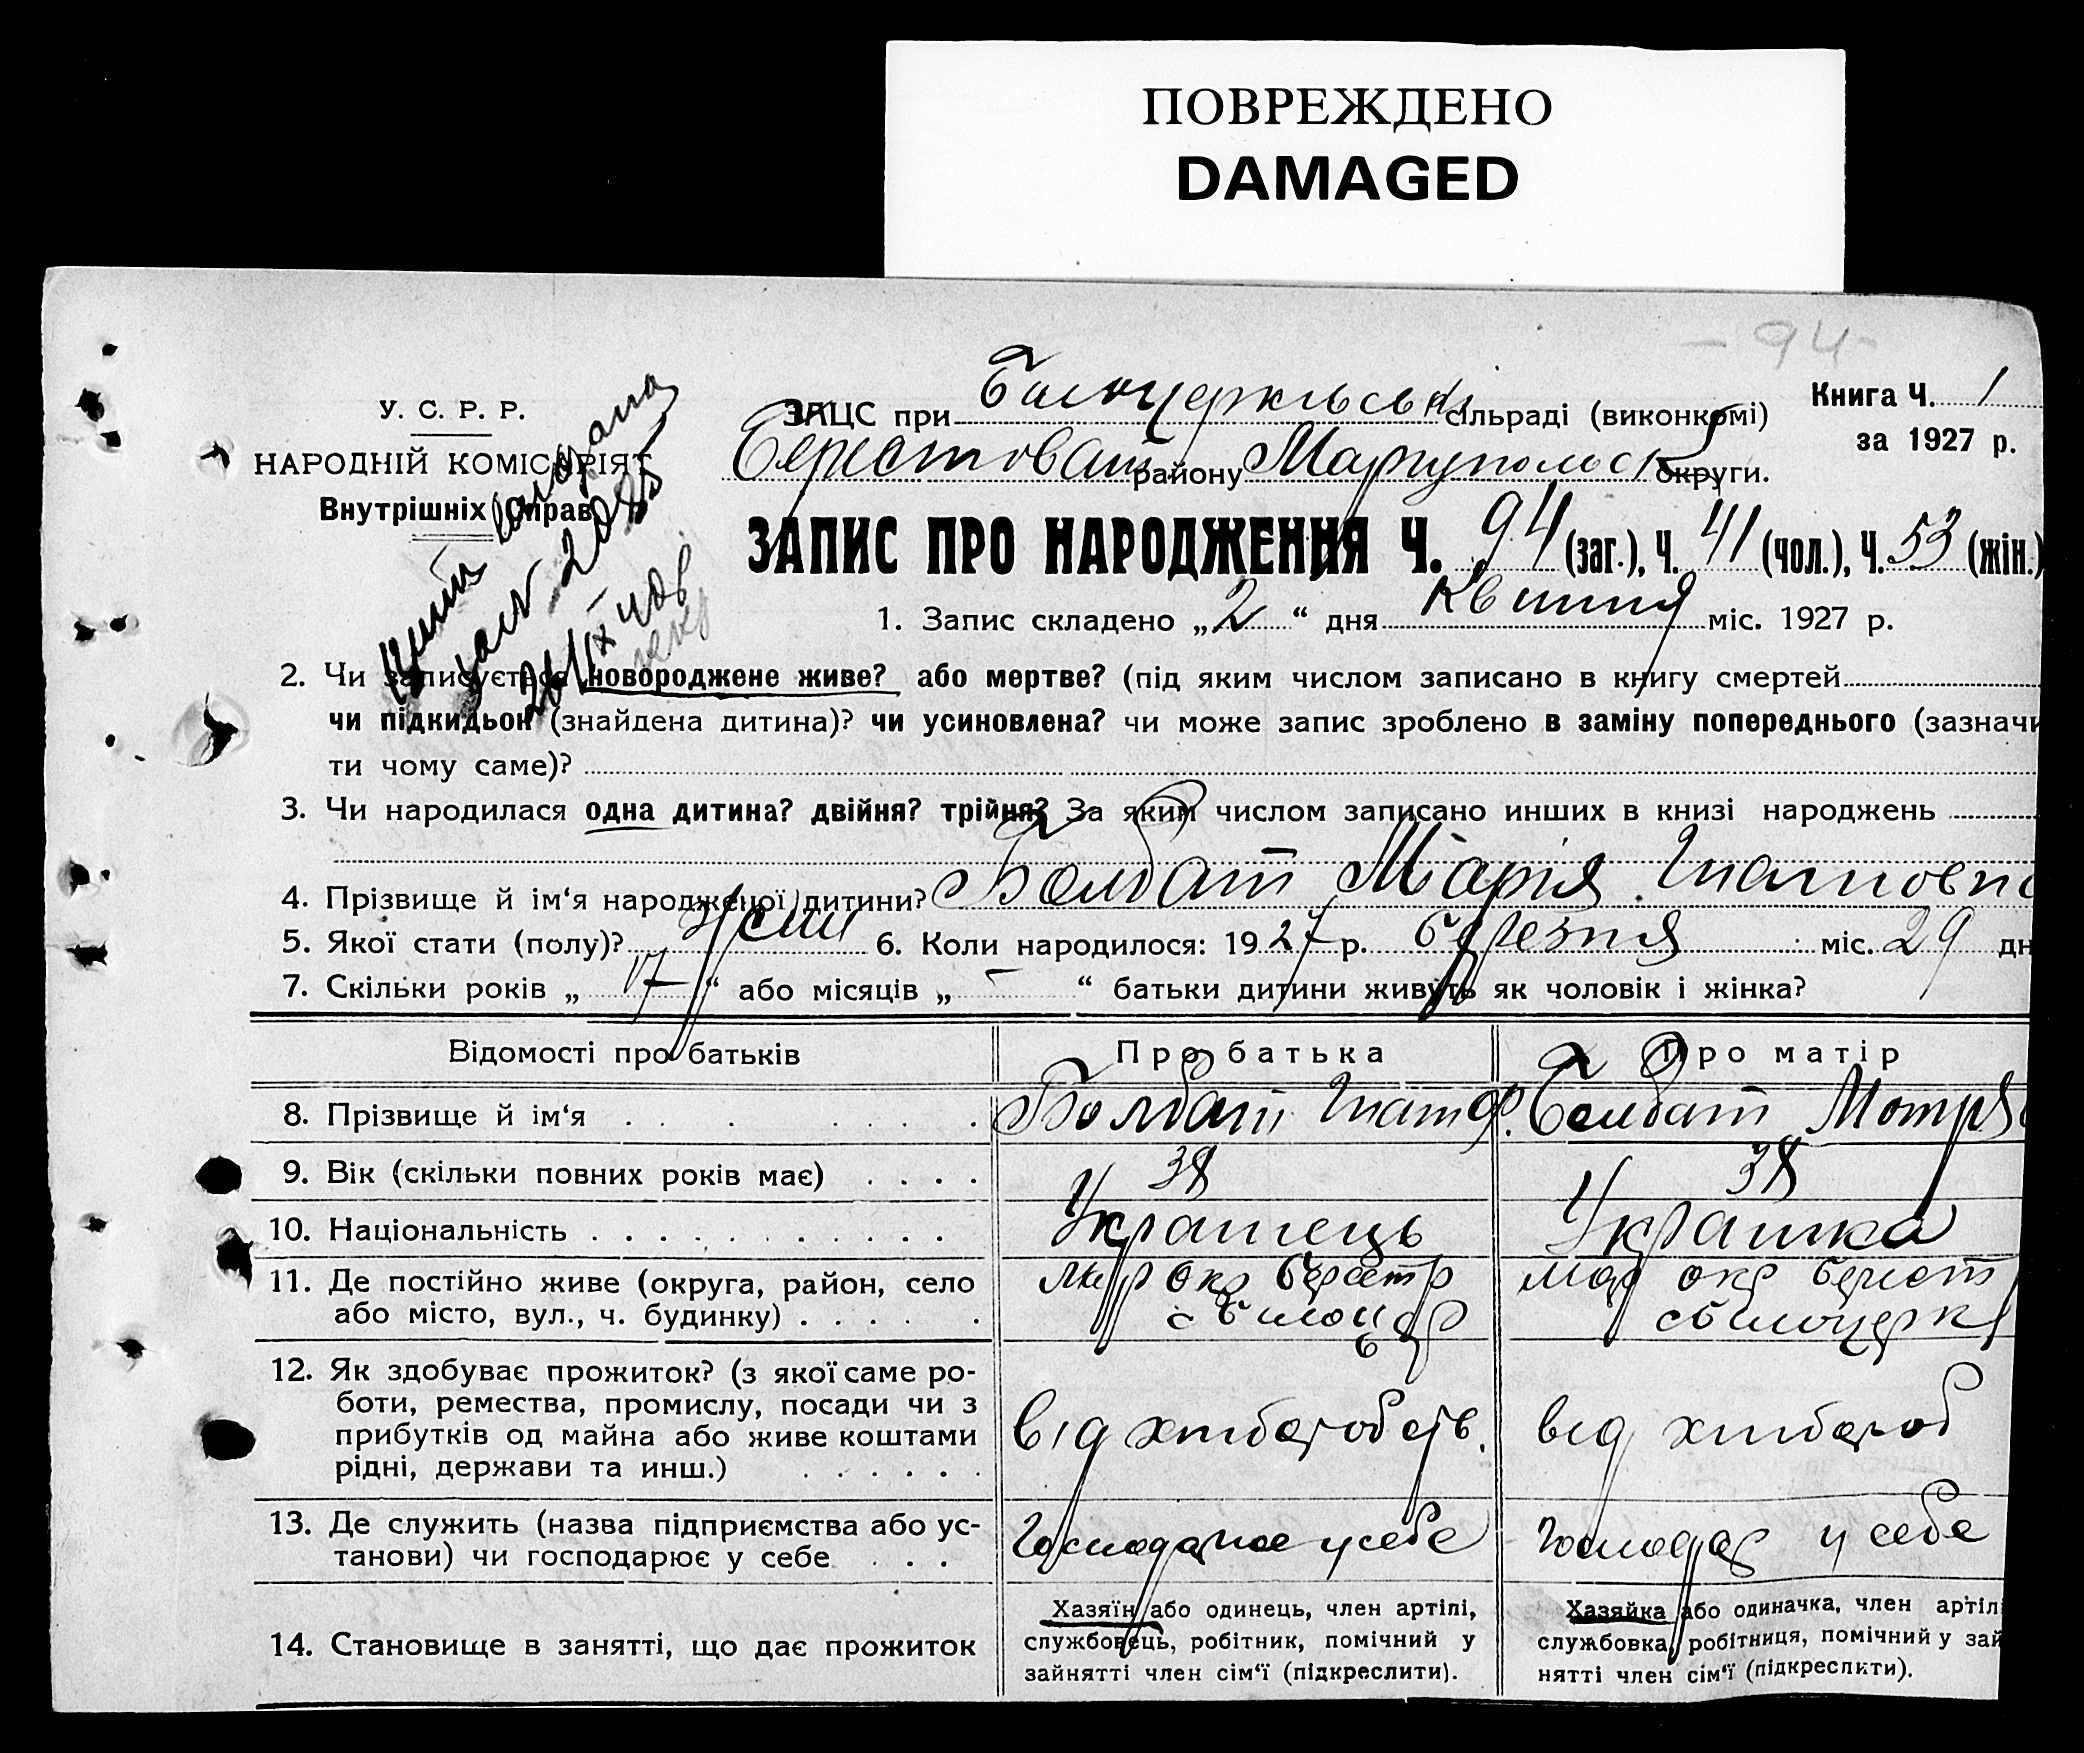 ПОВРЕЖДЕНО
DAMAGED
- 94 -
У. С. Р. Р.
НАРОДНІЙ КОМІСАРІЯТ
Внутрішніх Справ
ЗАЦС при Білоцерківській сільраді (виконкомі)
Берестоват району Маріупольск округи.
Книга Ч. 1
за 1927 р.
ЗАПИС ПРО НАРОДЖЕННЯ Ч. 94 (заг.), Ч. 41 (чол.), Ч. 53 (жін.)
1. Запис складено „ 2 “ дня Квітня міс. 1927 р.
2. Чи записується новороджене живе? або мертве? (під яким числом записано в книгу смертей
чи підкидьок (знайдена дитина)? чи усиновлена? чи може запис зроблено в заміну попереднього (зазначи
ти чому саме)?
3. Чи народилася одна дитина? двійня? трійня? За яким числом записано инших в книзі народжень
4. Прізвище й ім‘я народженої дитини? Болбат Марія Гнатовна
5. Якої стати (полу)? жіночої 6. Коли народилося: 1927 р. березня міс. 29 дн
7. Скільки років „ 17 “ або місяців „ - “ батьки дитини живуть як чоловік і жінка?
Відомості про батьків Про батька Про матір
8. Прізвище й ім‘я Болбат Гнат Ф. Болбат Мотря
9. Вік (скільки повних років має) 38 38
10. Національність Українець Українка
11. Де постійно живе (округа, район, село Мар окр Берест р Мар окр Берест
або місто, вул., ч. будинку) с Білоцер с Білоцерк
12. Як здобуває прожиток? (з якої саме ро-
боти, ремества, промислу, посади чи з
прибутків од майна або живе коштами від хліборобств. від хлібороб
рідні, держави та инш.)
13. Де служить (назва підприємства або ус-
танови) чи господарює у себе Господарює у себе Господар у себе
14. Становище в занятті, що дає прожиток
Хазяїн або одинець, член артілі,
службовець, робітник, помічний у
зайнятті член сім‘ї (підкреслити).
Хазяйка або одиначка, член артіл
службовка, робітниця, помічний у зай
нятті член сім‘ї (підкреслити).